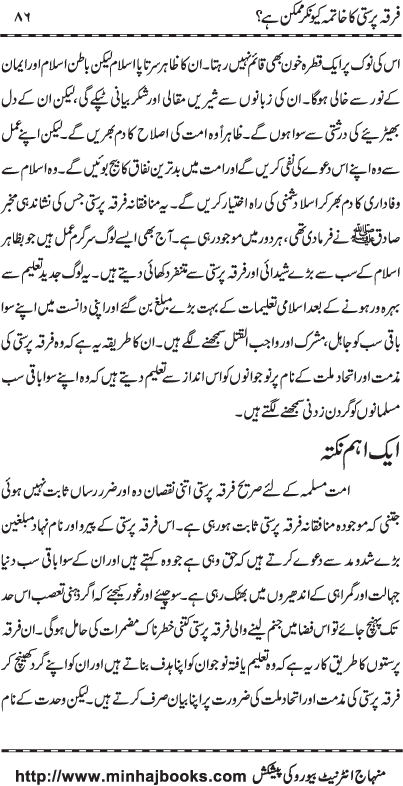 فرقہ پرستی کا خاتمہ کیونکر ممکن ہے؟ ۸۶
اس کی نوک پر ایک قطرہ خون بھی قائم نہیں رہتا۔ ان کا ظاہر سرتاپا اسلام لیکن باطن اسلام اور ایمان
کے نور سے خالی ہوگا۔ ان کی زبانوں سے شیریں مقالی اور شکر بیانی ٹپکے گی، لیکن ان کے دل
بھیڑیئے کی درشتی سے سوا ہوں گے۔ ظاہراً وہ امت کی اصلاح کا دم بھریں گے۔ لیکن اپنے عمل
سے وہ اپنے اس دعوے کی نفی کریں گے اور امت میں بدترین نفاق کا بیج بوئیں گے۔ وہ اسلام سے
وفاداری کا دم بھر کر اسلام دشمنی کی راہ اختیار کریں گے۔ یہ منافقانہ فرقہ پرستی جس کی نشاندہی مخبر
صادق ﷺ نے فرما دی تھی، ہر دور میں موجود رہی ہے۔ آج بھی ایسے لوگ سرگرم عمل ہیں جو بظاہر
اسلام کے سب سے بڑے شیدائی اور فرقہ پرستی سے متنفر دکھائی دیتے ہیں۔ یہ لوگ جدید تعلیم سے
بہرہ ور ہونے کے بعد اسلامی تعلیمات کے بہت بڑے مبلغ بن گئے اور اپنی دانست میں اپنے سوا
باقی سب کو جاہل، مشرک اور واجب القتل سمجھنے لگے۔ ان کا طریقہ یہ ہے کہ وہ فرقہ پرستی کی
مذمت اور اتحاد ملت کے نام پر نوجوانوں کو اس انداز سے تعلیم دیتے ہیں کہ وہ اپنے سوا باقی سب
مسلمانوں کو گردن زدنی سمجھنے لگتے ہیں۔
ایک اہم نکتہ
امت مسلمہ کے لئے صریح فرقہ پرستی اتنی نقصان دہ اور ضرر رساں ثابت نہیں ہوئی
جتنی کہ موجودہ منافقانہ فرقہ پرستی ثابت ہو رہی ہے۔ اس فرقہ پرستی کے پیرو اور نام نہاد مبلغین
بڑے شدومد سے دعوے کرتے ہیں کہ حق وہی ہے جو وہ کہتے ہیں اور ان کے سوا باقی سب دنیا
جہالت اور گمراہی کے اندھیروں میں بھٹک رہی ہے۔ سوچیئے اور غور کیجئے کہ اگر ذہنی تعصب اس حد
تک پہنچ جائے تو اس فضا میں جنم لینے والی فرقہ پرستی کتنی خطرناک مضمرات کی حامل ہوگی۔ ان فرقہ
پرستوں کا طریق کار یہ ہے کہ وہ تعلیم یافتہ نوجوان کو اپنا ہدف بناتے ہیں اور ان کو اپنے گرد کھینچ کر
فرقہ پرستی کی مذمت اور اتحاد ملت کی ضرورت پر اپنا بیان صرف کرتے ہیں۔ لیکن وحدت کے نام
منہاج انٹرنیٹ بیورو کی پیشکش http://www.minhajbooks.com